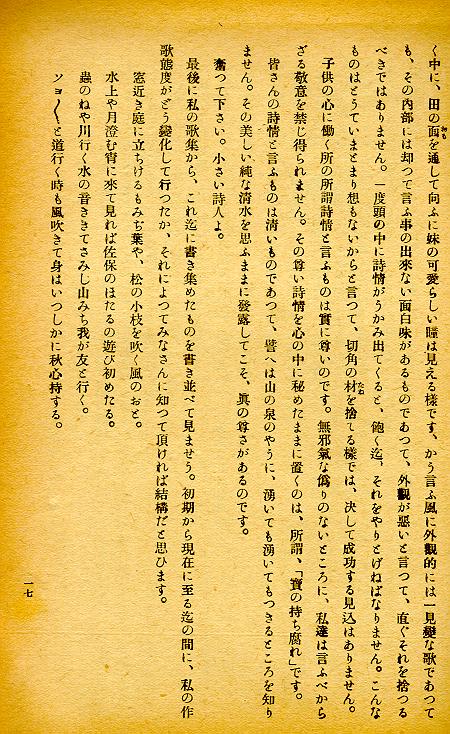 く中に、田の面を通して向ふに妹の可愛らしい瞳は見える樣です、かう言ふ風に外觀的には一見變な歌であつて
も、その內部には却つて言ふ事の出來ない面白味があるものであつて、外觀が惡いと言つて、直ぐそれを捨つる
べきではありません。一度頭の中に詩情がうかみ出てくると、飽く迄、それをやりとげねばなりません。こんな
ものはとうていまとまり想もないからと言つて、切角の材を捨てる樣では、決して成功する見込はありません。
子供の心に働く所の所謂詩情と言ふものは實に尊いのです。無邪氣な僞りのないところに、私達は言ふべから
ざる敬意を禁じ得られません。その尊い詩情を心の中に秘めたままに置くのは、所謂、「寶の持ち腐れ」です。
皆さんの詩情と言ふものは淸いものであつて、譬へは山の泉のやうに、湧いても湧いてもつきるところを知り
ません。その美しい純な淸水を思ふままに發露してこそ、眞の尊さがあるのです。
奮つて下さい。小さい詩人よ。
最後に私の歌集から、これ迄に書き集めたものを書き並べて見ませう。初期から現在に至る迄の間に、私の作
歌態度がどう變化して行つたか、それによつてみなさんに知つて頂ければ結構だと思ひます。
窓近き庭に立ちけるもみぢ葉や、松の小枝を吹く風のおと。
水上や月澄む宵に來て見れば佐保のほたるの遊び初めたる。
蟲のねや川行く水の音ききてさみし山みち我が友と行く。
ソヨ〱と道行く時も風吹きて身はいつしかに秋心持する。
一七